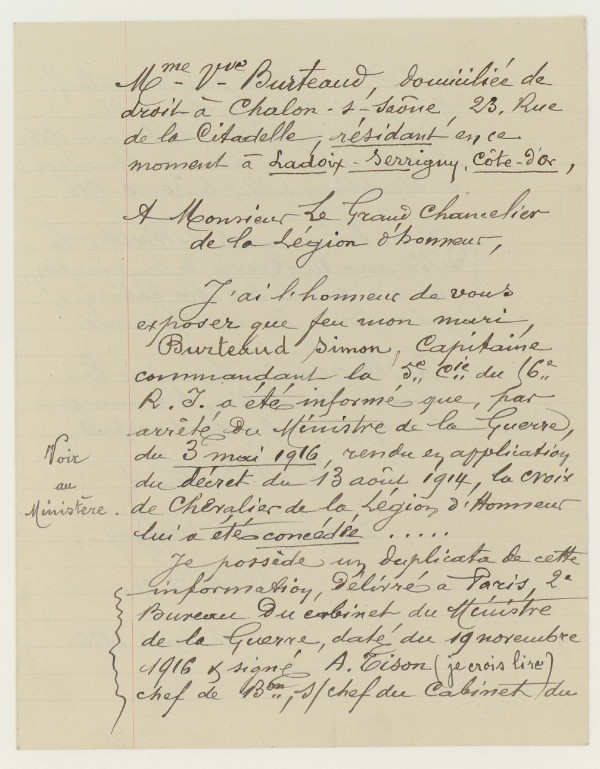 Mme Vve Burteaud, domiciliée de
droit à Chalon-s-Saône, 23, Rue
de la Citadelle, résidant en ce
moment à Ladoix-Serrigny, Côte-d'Or,
A Monsieur Le Grand Chancelier
de la Légion d'honneur,
J'ai l'honneur de vous
exposer que feu mon mari,
Burteaud Simon, Capitaine
commandant la 5e Cie du 56e
R. I. a été informé que, par
arrêté du Ministre de la Guerre,
du 3 mai 1916, rendu en application
du décret du 13 août 1914, la croix
de Chevalier de la Légion d'Honneur
lui a été concédée .....
Voir
au
Ministère.
Je possède un duplicata de cette
information, délivré à Paris, 2e
Bureau du cabinet du Ministre
de la Guerre, daté du 19 novembre
1916 & signé A. Tison (je crois lire)
chef de Bon, s/chef du Cabinet du